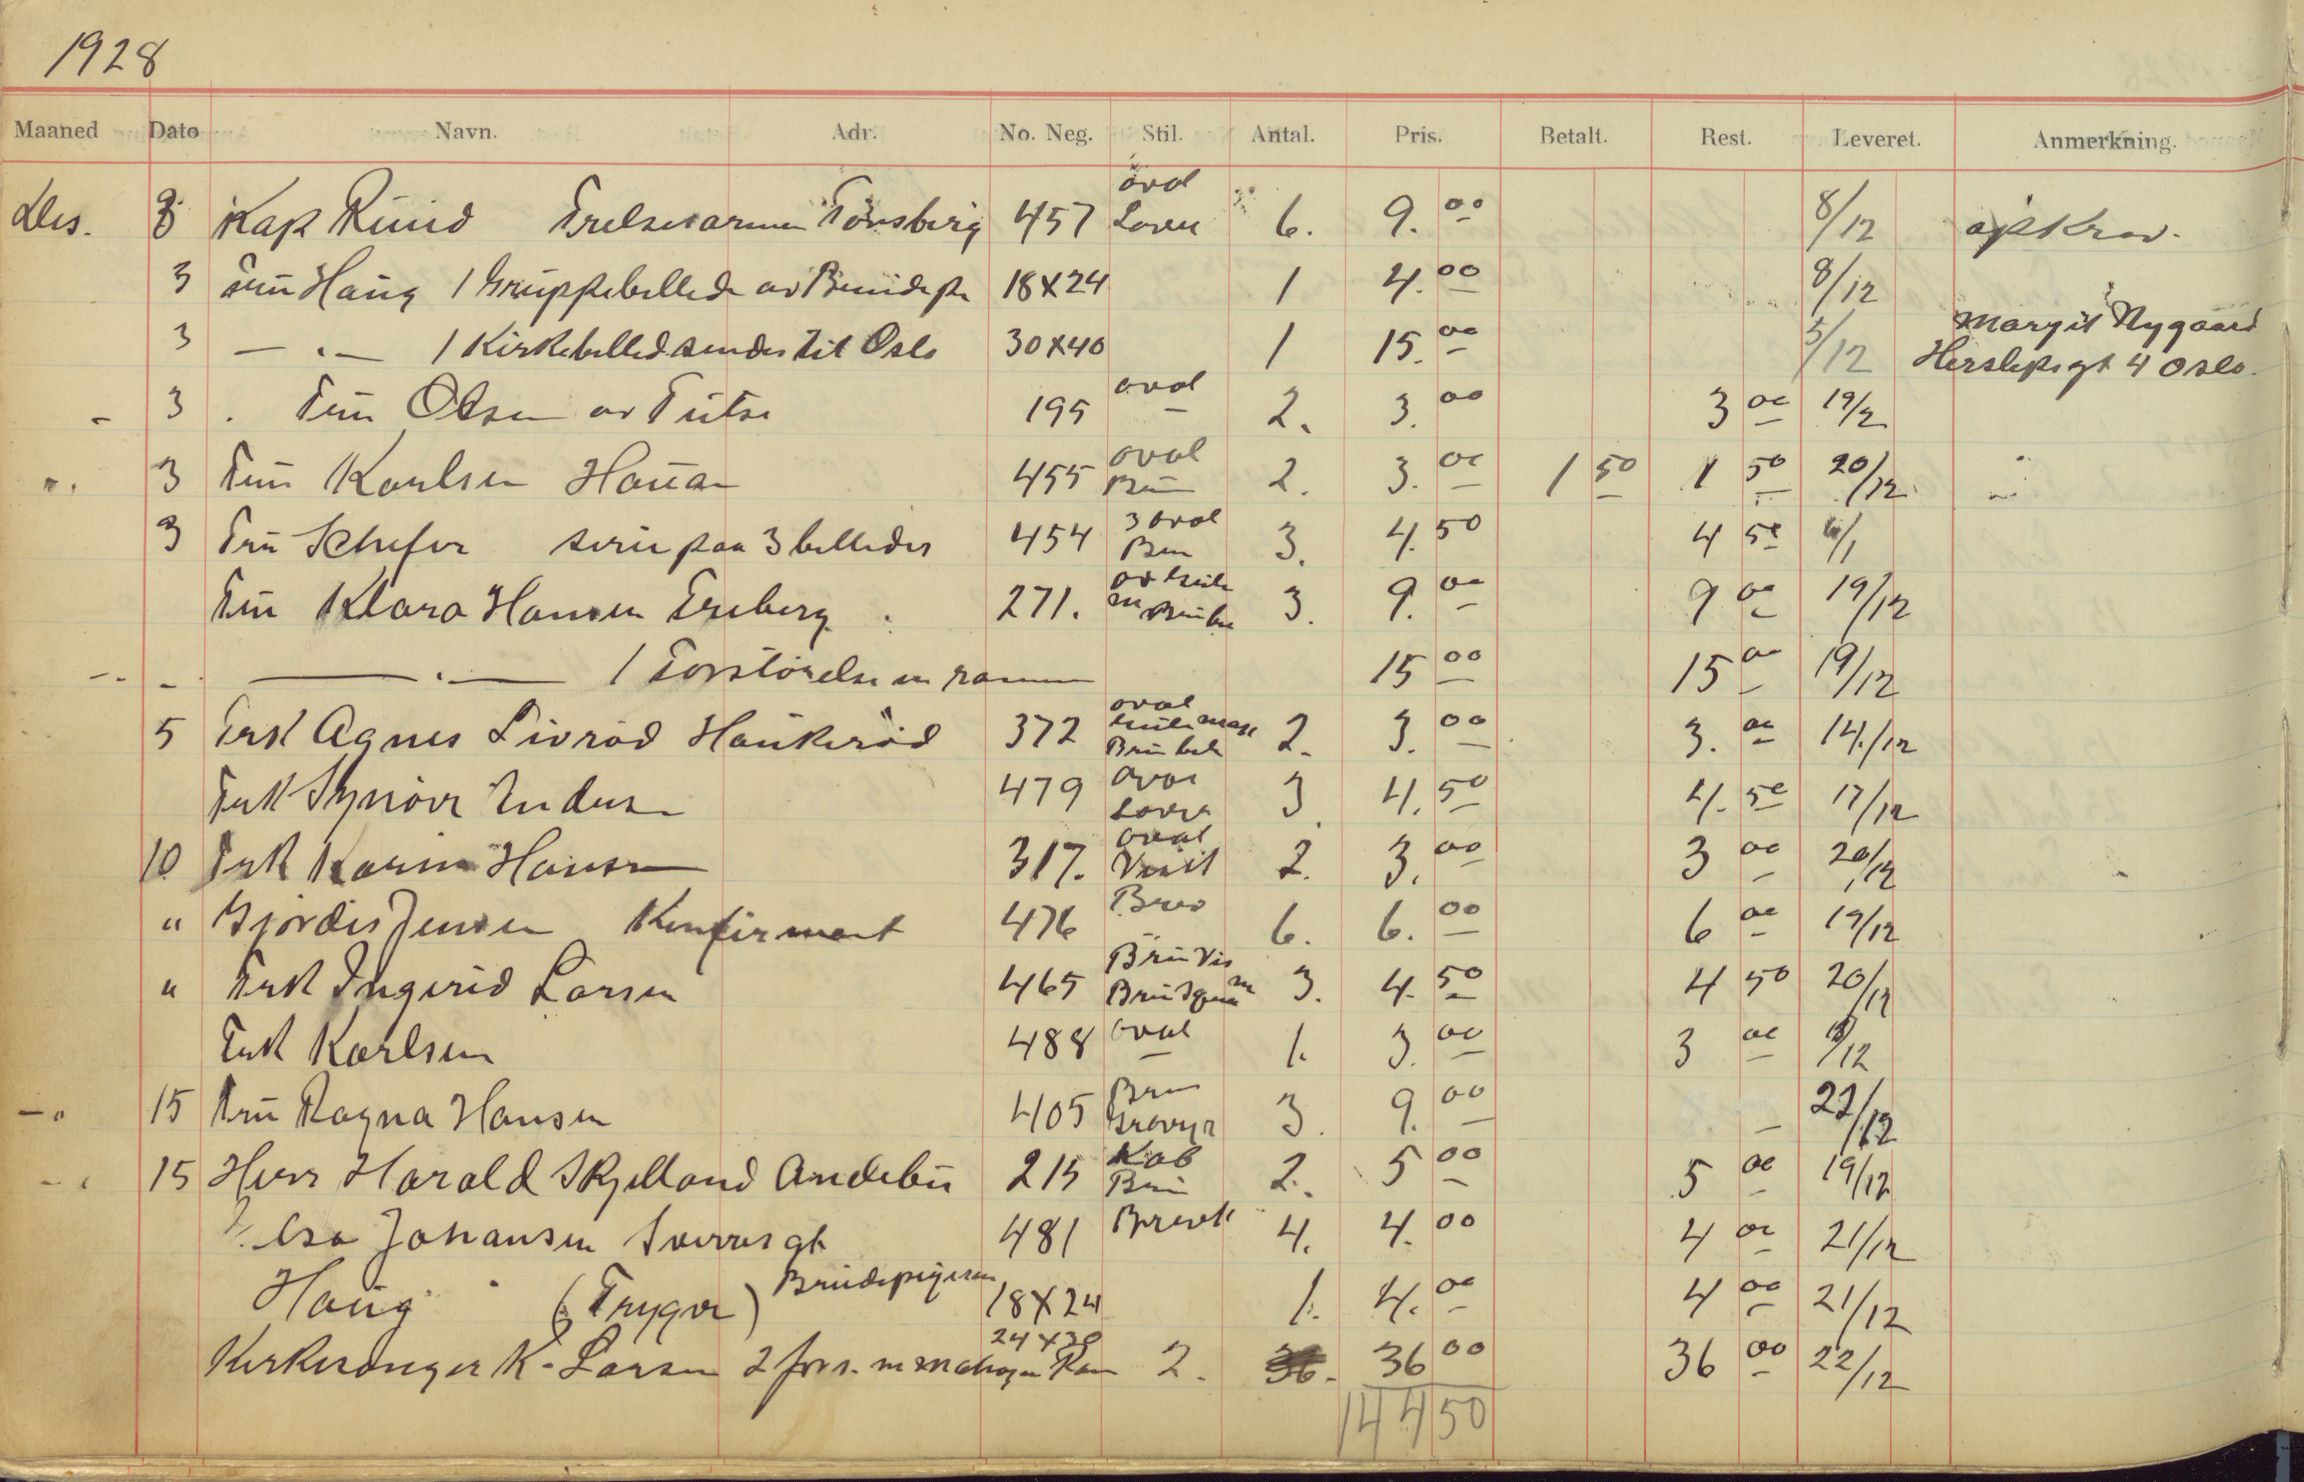 1928
Maaned Dato Navn. Adr. No. Neg. Stil. Antal. Pris. Betalt. Rest. Leveret. Anmerkning.
Des. 8 Kap Ruud Frelsesarmen Tönsberg 457 oval 6. 9. 00 8/12 opkrav.
3 Fru Haug 1 Gruppebillede av 18x24 1 4. 00 8/12
3 — . — 1 Kirkebilled sendes til Oslo 30x40 1 15. 00 5/12 Margit Nygaard 4 Oslo.
- 3 Fru Olsen av 195 oval - 2. 3. 00 3 00 19/2
3 Fru Karlsen 455 oval 2. 3. 00 1 50 1 50 20/12
3 Fru Schefer serie paa 3 billeder 454 3 oval 3. 4. 50 4 50
Fru Klara Hansen 271. 3. 9. 00 9 00 19/12
— . — 1 Forstörelse m ramme 15 00 15 00 19/12
5 Frk Agnes Livröd Haukeröd 372 oval 2. 3. 00 3. 00 14./12
Frk Synöve 479 3 4. 50 4. 50 17/12
10 Frk Karin Hansen 317. oval Visit 2. 3. 00 3 00 20/12
" Hjördis Jensen Konfirmant 476 Brev 6. 6. 00 6 00 19/12
" Frk Ingerid Larsen 465 3. 4. 50 4 50 20/12
Frk Karlsen 488 oval - 1. 3. 00 3 00
15 Fru Ragna Hansen 405 3. 9. 00 - 22/12
15 Herr Harald Skjelland Andebu 215 Kab 2. 5 00 5 00 19/12
Johansen Sverresgt 481 4. 4. 00 4 00 21/12
Haug (Trygve) 18x24 1. 4. 00 4 00 21/12
Kirkesanger K. Larsen 2 fors. m 24x30 2. 36 00 36 00 22/12
144 50